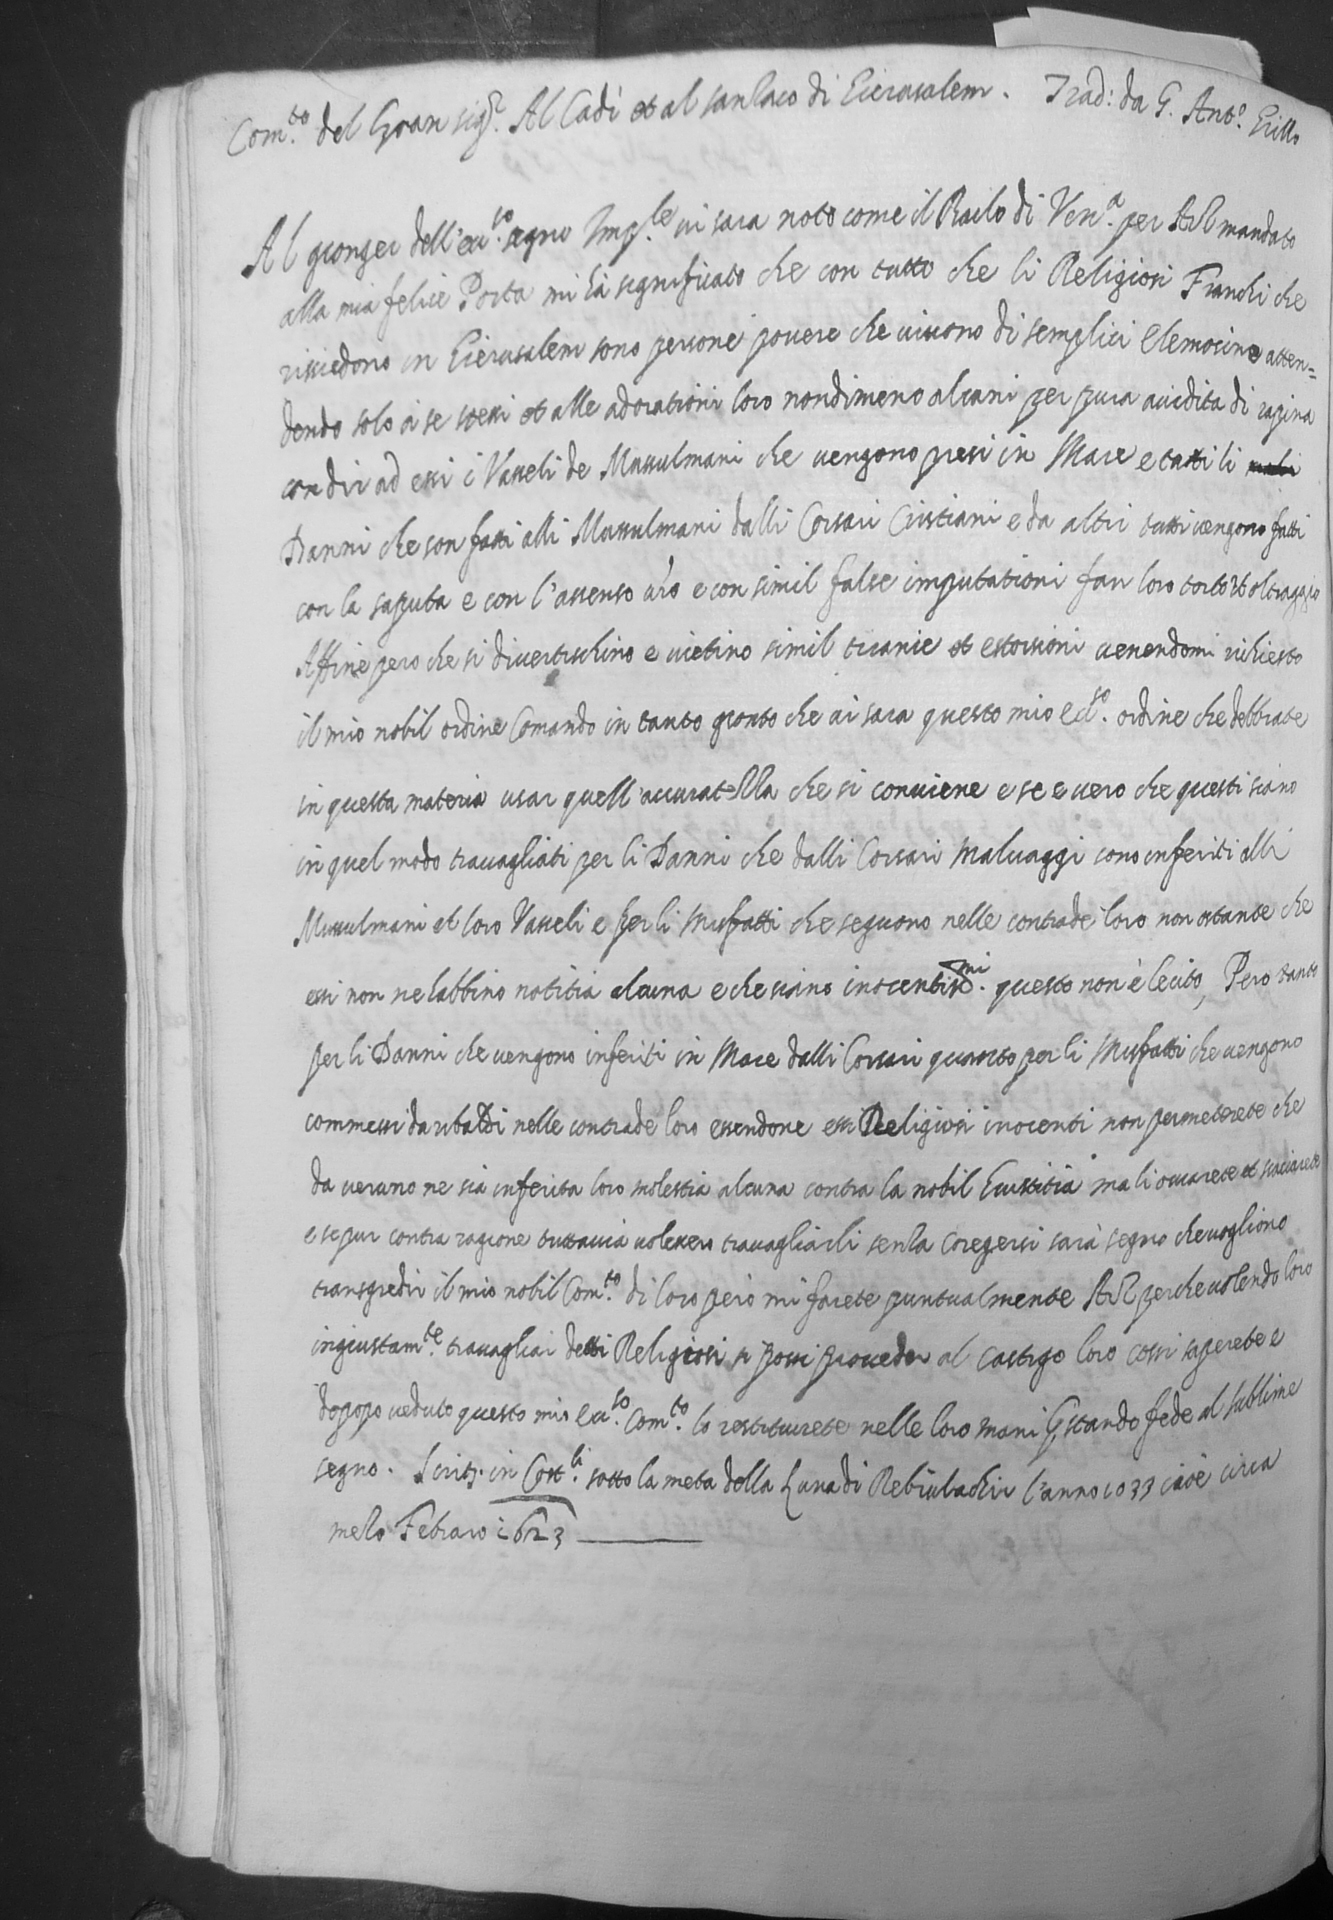 Com.to del Gran Sig.r Al Cadì et al sanzaco di Gierusalem. Trad: da G. Ant.o Grillo
Al gionger dell'ecc.so segno Imp.le vi sara noto come il Bailo di Ven.a per Arz mandato
alla mia felice Porta mi hà significato che con tutto che li Religiosi Franchi che
rissiedono in Gierusalem sono persone povere che vivono di semplici Elemosine atten=
dendo solo à se stessi et alle adorationi loro nondimeno alcuni per pura avidita di rapina
con dir ad essi i Vasseli de Mussulmani che vengono presi in Mare e tutti li
Danni che son fatti alli Mussulmani dalli Corsari Cristiani e da altri tutti vengono fatti
con la saputa e con l'assenso vr̃o e con simil false imputationi fan loro torto et oltraggio
Affine pero che si divertischino e vietino simil tiranie et estorsioni venendomi richiesto
il mio nobil ordine Comando in tanto gionto che vi sara questo mio ecc.so ordine che debbiate
in questa materia usar quell'accuratezza che si conviene e se e vero che questi siano
in quel modo travagliati per li Danni che dalli Corsari malvaggi sono inferiti alli
Mussulmani et loro Vasseli e per li Misfatti che seguono nelle contrade loro non ostante che
essi non ne habbino notitia alcuna e che siano inocentiss.mi questo non è lecito, Pero tanto
per li Danni che vengono inferiti in Mare dalli Corsari quanto per li Misfatti che vengono
commessi da ribaldi nelle contrade loro essendone essi Religiosi inocenti non permeterete che
da veruno ne sia inferita loro molestia alcuna contra la nobil Giustitia ma li ovvarete et scaciarete
e se pur contra ragione tuttavia volessero travagliarli senza coregersi sarà segno che vogliono
transgredir il mio nobil Com.to di loro però mi farete puntualmente Arz perche volendo loro
ingiustam.te travagliar detti Religiosi si possi proveder al castigo loro cossi saperete e
doppo veduto questo mio ecc.so Com.to lo restituirete nelle loro mani prestando fede al sublime
segno. Scritt. in Cost.li sotto la meta della Luna di Rebiulachir l'anno 1033 cioè circa
mezo Febraro 1623